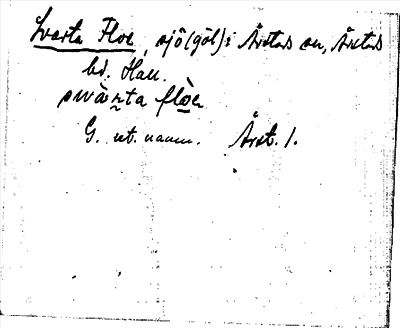 Svarta Floe, sjö (göl) i Årstads sn, Årstads
hd. Hall.
swàṇta flòe.
G. ut. namn. Årst. 1.